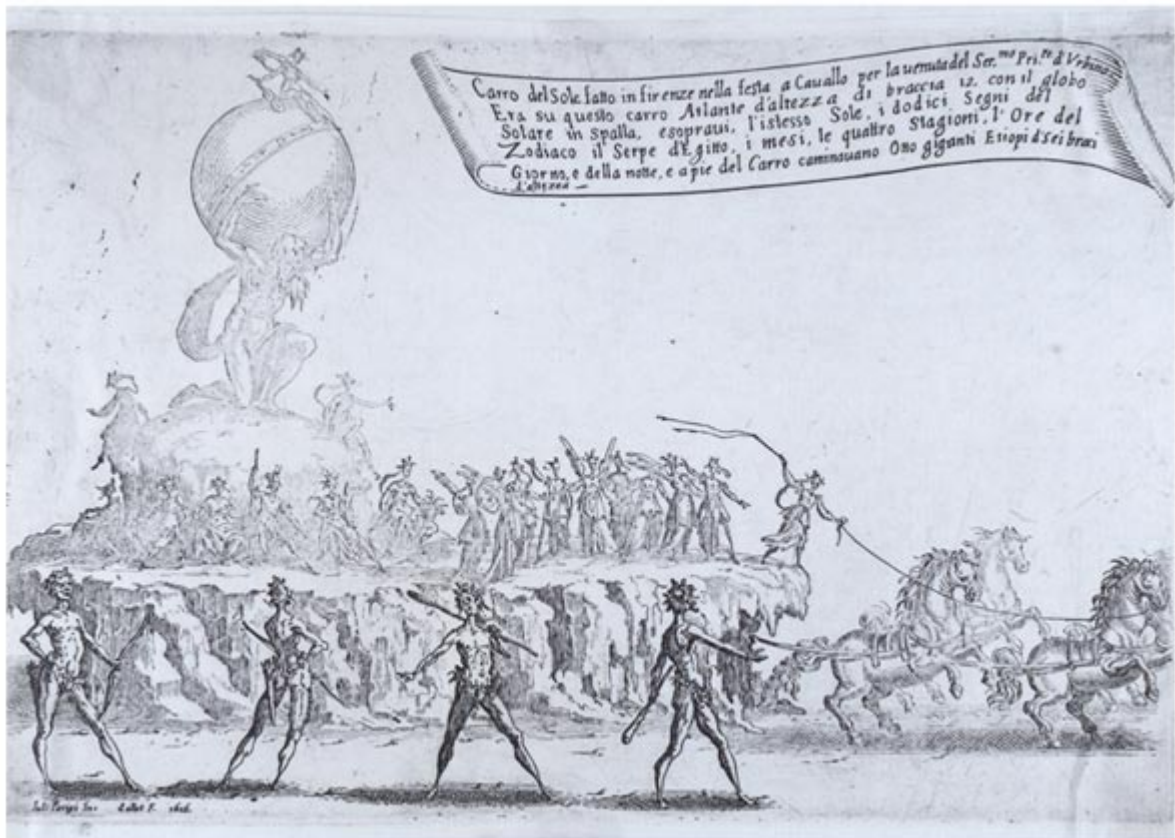 Carro del Sole fatto in firenze nella festa a Cauallo per la uenuta del Ser.mo Pri.pe d'Vrbino
Era su questo carro Atlante d'altezza di braccia 12. con il globo
Solare in spalla, e sopraui, l'istesso Sole, i dodici Segni del
Zodiaco il Serpe d'Egitto, i mesi, le quattro Stagioni, l'Ore del
Giorno, e della notte, e a pie del Carro caminauano Otto giganti Etiopi d Sei braci
d'altezza
Iuli Parigii Inu Callot F. 1616.